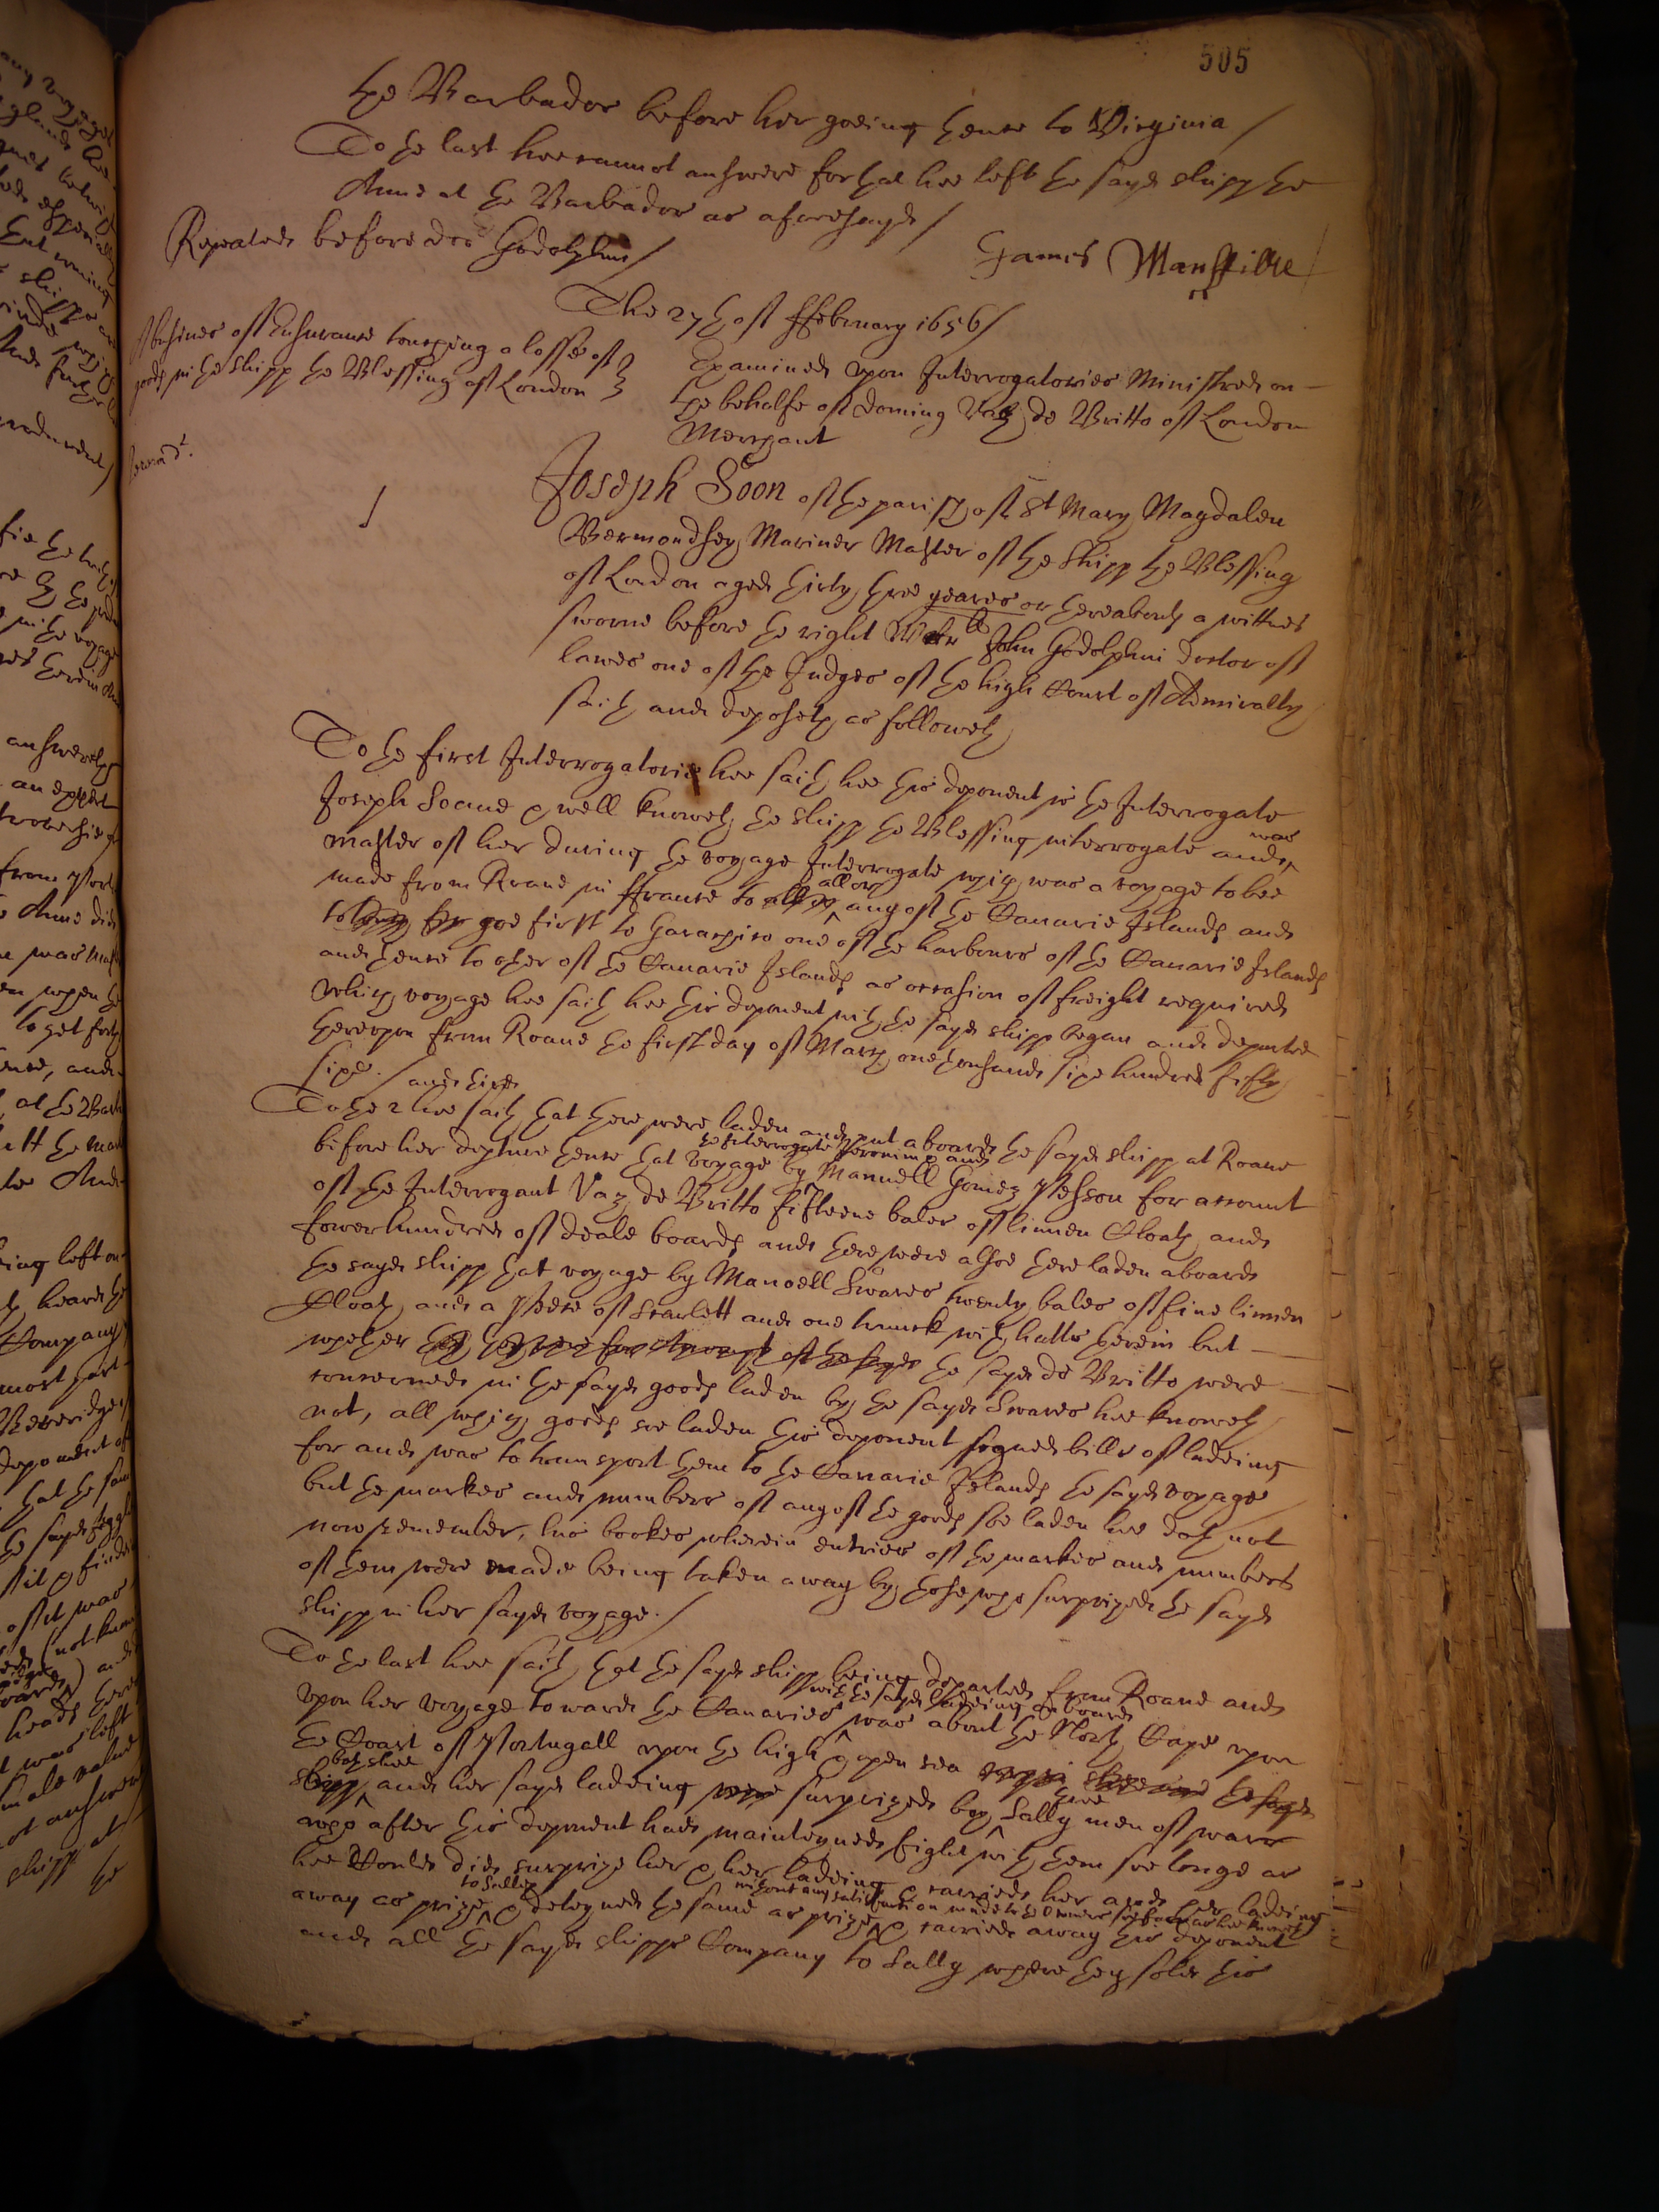 505
the Barbados before her goeing thence to Virginia /
To the last hee cannot answere for that hee left the sayd shipp the
Anne at the Barbados as aforesayd /
Repeated before doctor Godolphin /
James Manffilde
The 27th of ffebruary 1656 /
A busines of Insurance touching a losse of
goods in the shipp the Blessing of London
Examined upon Interrogatories Ministred on
the behalfe of doming Vaz de Britto of London
Merchant
1
Joseph Soon of the parish of St Mary Magdalen
Bermondsey Mariner Master of the Shipp the Blessing
of London aged thirty three yeares or thereabouts a wittnes
sworne before the right Worll John Godolphin doctor of
lawes one of the Judges of the high Court of Admiralty
saith and deposeth as followeth
To the first Interrogatorie hee saith hee this deponent is the Interrogate
Joseph Soane & well knoweth the shipp the Blessing interrogate and was
master of her during the voyage Interrogate which was a voyage to bee
made from Roane in ffrance to all or any of the Canarie Islands and
to goe first to Garachico one of the harbours of the Canarie Islands
and thence to other of the Canarie Islands as occasion of freight required
which voyage hee saith hee this deponent with the sayd shipp began and departed
thereupon from Roane the first day of March one thousand six hundred fifty
six. /
To the 2 and third hee saith that there were laden and put aboard the sayd shipp at Roane
before her departure thence that voyage by the Interrogate Jeronimo and Manuell Gomez Pesson for account
of the Interrogant Vaz de Britto fifteene bales of linnen Cloath and
fower hundred of deale boards and there were alsoe there laden aboard
the sayd shipp that voyage by Manoell Swares twenty bales of fine linnen
Cloath and a peece of Scarlett and one trunck with hatts therein but
whether the sayd de Britto were
concerned in the sayd goods laden by the sayd Swares hee knoweth
not, all which goods soe laden this deponent signed bills of ladeing
for and was to transport them to the Canarie Islands the sayd voyage
but the markes and numbers of any of the goods soe laden hee doth not
now remember, his bookes wherein entries of the markes and numbers
of them were made being taken away by those who surprized the sayd
shipp in her sayd voyage. /
To the last hee saith that the sayd shipp being departed from Roane and
upon her voyage towards the Canaries with the sayd ladeing aboard was about the North Cape upon
the Coast of Portugall upon the high & open sea
both shee and her sayd ladeing were surprized by three Sally men of warr
who after this deponent had mainteyned fight with them soe longe as
hee Could did surprize her & her ladeing & carried her and her ladeing
away as prize to Sally & deteyned the same as prize without any satisfaction made to the Owners soe farr as hee knoweth & carried away this deponent
and all the sayd shipps Company to Sally where they sold this